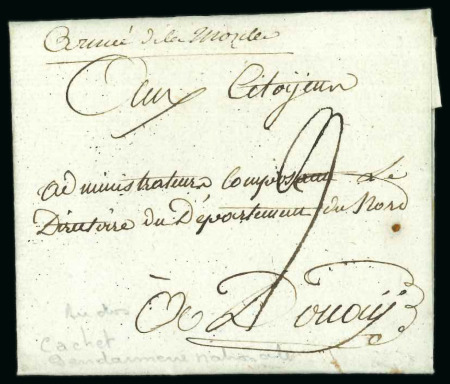 Armée de la Mozelle
Aux Citoyens
Administrateurs Composant Le
Directoire du Département du Nord
9
à Douay
Au dos
Cachet
Gendarmerie nationale